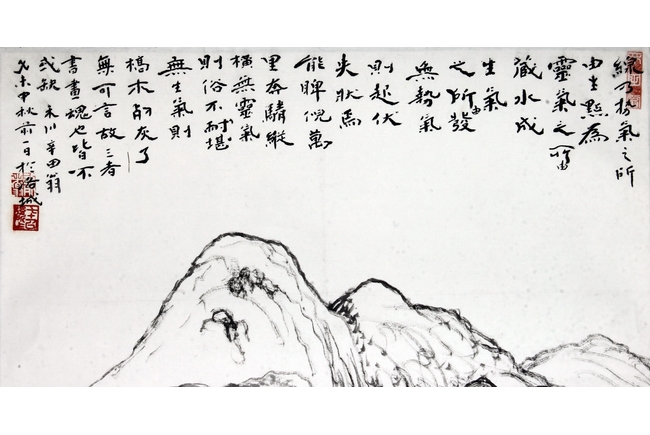 線乃勢氣之所
由生點為
靈氣之所
藏水成
生氣
之所由發
無勢氣
則起伏
失狀焉
能睥倪萬
里奔驕縱
橫無靈氣
則俗不耐堪
無生氣則
槁木死灰了
無可言故三者
書畫魂也皆不
或缺 永川辛田翁
中秋前一日於